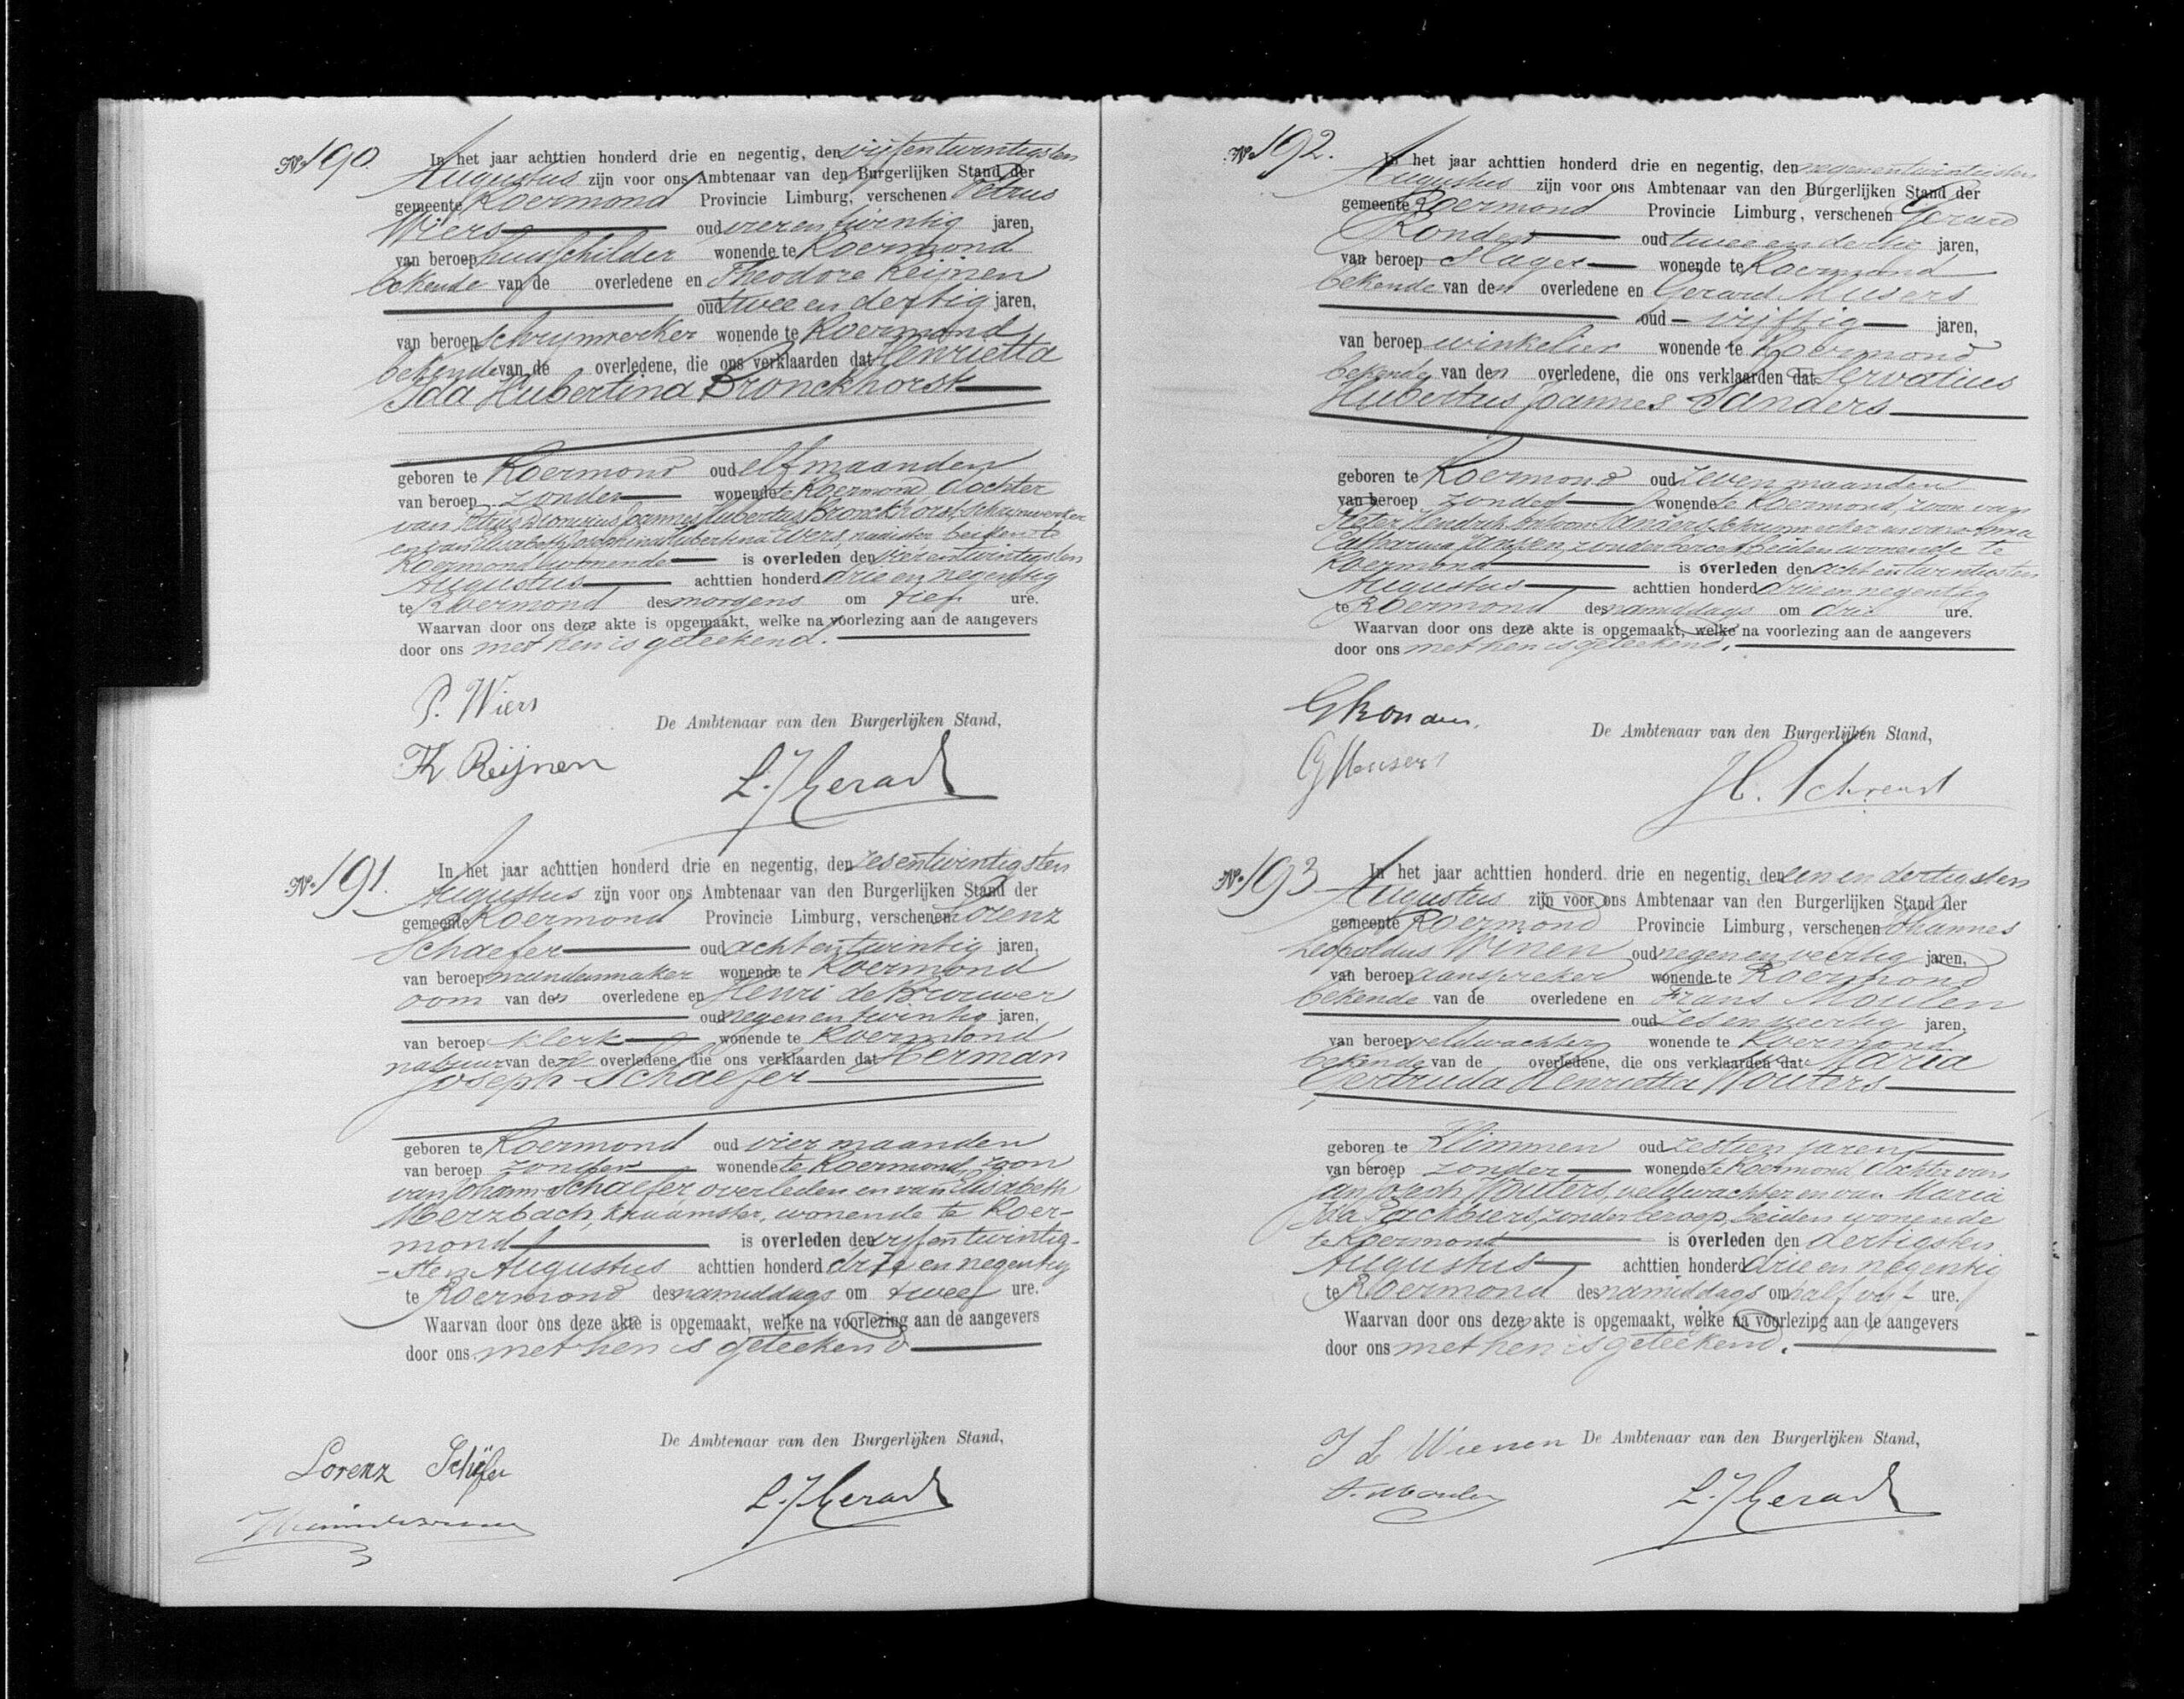 No. 190. In het jaar achttien honderd drie en negentig, den vijfentwintigsten
Augustus zijn voor ons Ambtenaar van den Burgerlijken Stand der
gemeente Roermond Provincie Limburg, verschenen Petrus
Wiers oud vierentwintig jaren,
van beroep huisschilder wonende te Roermond
bekende van de overledene en Theodore Reijnen
oud twee en dertig jaren,
van beroep schrijnwerker wonende te Roermond
bekende van de overledene, die ons verklaarden dat Henrietta
Ida Hubertina Bronckhorst
geboren te Roermond oud elf maanden
van beroep zonder wonende te Roermond, dochter
van Petrus Dionisius Joannes Hubertus Bronckhorst, schrijnwerker
en van Elisabeth Hubertina Wiers, naaister beiden te
Roermond wonende is overleden den vierentwintigsten
Augustus achttien honderd drie en negentig
te Roermond des morgens om tien ure.
Waarvan door ons deze akte is opgemaakt, welke na voorlezing aan de aangevers
door ons met hen is geteekend.
P. Wiers
De Ambtenaar van den Burgerlijken Stand,
Th Reijnen
L. J Gerard
No. 191. In het jaar achttien honderd drie en negentig, den zesentwintigsten
Augustus zijn voor ons Ambtenaar van den Burgerlijken Stand der
gemeente Roermond Provincie Limburg, verschenen Lorenz
Schaefer oud achtentwintig jaren,
van beroep mandenmaker wonende te Roermond
oom van den overledene en Henri de Brouwer
oud negenentwintig jaren,
van beroep klerk wonende te Roermond
nabuur van den overledene, die ons verklaarden dat Herman
Joseph Schaefer
geboren te Roermond oud vier maanden
van beroep zonder wonende te Roermond, zoon
van Johann Schaefer overleden en van Elisabeth
Merzbach, kraamster, wonende te Roer-
mond is overleden den vijfentwintig-
-sten Augustus achttien honderd drie en negentig
te Roermond des namiddags om twee ure.
Waarvan door ons deze akte is opgemaakt, welke na voorlezing aan de aangevers
door ons met hen is geteekend
De Ambtenaar van den Burgerlijken Stand,
Lorenz Schäfer
L. J Gerard
No. 192. In het jaar achttien honderd drie en negentig, den negenentwintigsten
Augustus zijn voor ons Ambtenaar van den Burgerlijken Stand der
gemeente Roermond Provincie Limburg, verschenen Gerard
Ronden oud twee en dertig jaren,
van beroep slager wonende te Roermond
bekende van den overledene en Gerard Meusers
oud vijftig jaren,
van beroep winkelier wonende te Roermond
bekende van den overledene, die ons verklaarden dat Servatius
Hubertus Joannes Sanders
geboren te Roermond oud zeven maanden
van beroep zonder wonende te Roermond, zoon van
Pieter Hendrik Antoon Sanders, schrijnwerker en van Anna
Catharina Janssen, zonder beroep beiden wonende te
Roermond is overleden den achtentwintigsten
Augustus achttien honderd drie en negentig
te Roermond des namiddags om drie ure.
Waarvan door ons deze akte is opgemaakt, welke na voorlezing aan de aangevers
door ons met hen is geteekend.
G Ronden
De Ambtenaar van den Burgerlijken Stand,
G Meusers
No. 193 In het jaar achttien honderd drie en negentig, den een en dertigsten
Augustus zijn voor ons Ambtenaar van den Burgerlijken Stand der
gemeente Roermond Provincie Limburg, verschenen Johannes
Leopoldus Wienen oud negen en veertig jaren,
van beroep aanspreker wonende te Roermond
bekende van de overledene en Frans Moulen
oud zes en veertig jaren,
van beroep veldwachter wonende te Roermond
bekende van de overledene, die ons verklaarden dat Maria
Gertruda Henrietta Wouters
geboren te Klimmen oud zestien jaren
van beroep zonder wonende te Roermond, dochter van
Jan Joseph Wouters, veldwachter en van Maria
Ida Pachbiers, zonder beroep, beiden wonende
te Roermond is overleden den dertigsten
Augustus achttien honderd drie en negentig
te Roermond des namiddags om half vijf ure.
Waarvan door ons deze akte is opgemaakt, welke na voorlezing aan de aangevers
door ons met hen is geteekend.
J L Wienen De Ambtenaar van den Burgerlijken Stand,
F. Moulen
L. J Gerard